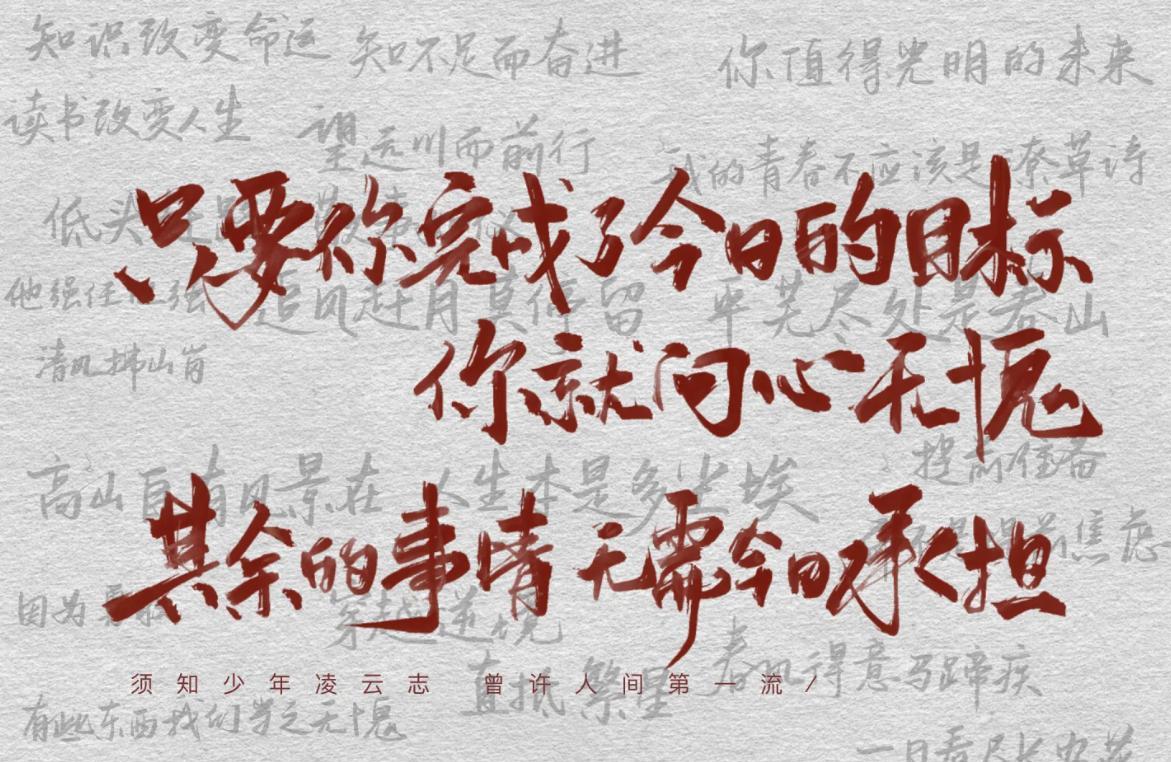 知识改变命运 知不足而奋进 你值得光明的未来
读书改变人生
望远山而前行
我的青春不应该是潦草诗
只要你完成了今日的目标
低头
他强任他强
追风赶月莫停留 平芜尽处是春山
清风拂山岗
你就问心无愧
高山自有风景在 人生本是多尘埃
其余的事情 无需今日承担
焦虑
因为
穿越逆境
须知少年凌云志 曾许人间第一流 /
直抵繁星
春风得意马蹄疾
有些东西我们学之无愧
一日看尽长安花